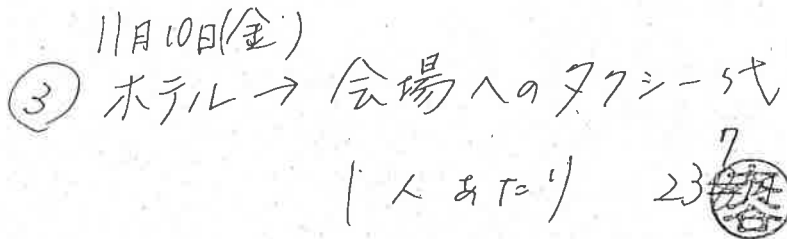 11月10日(金)
③ ホテル→会場へのタクシー代
1人あたり 237